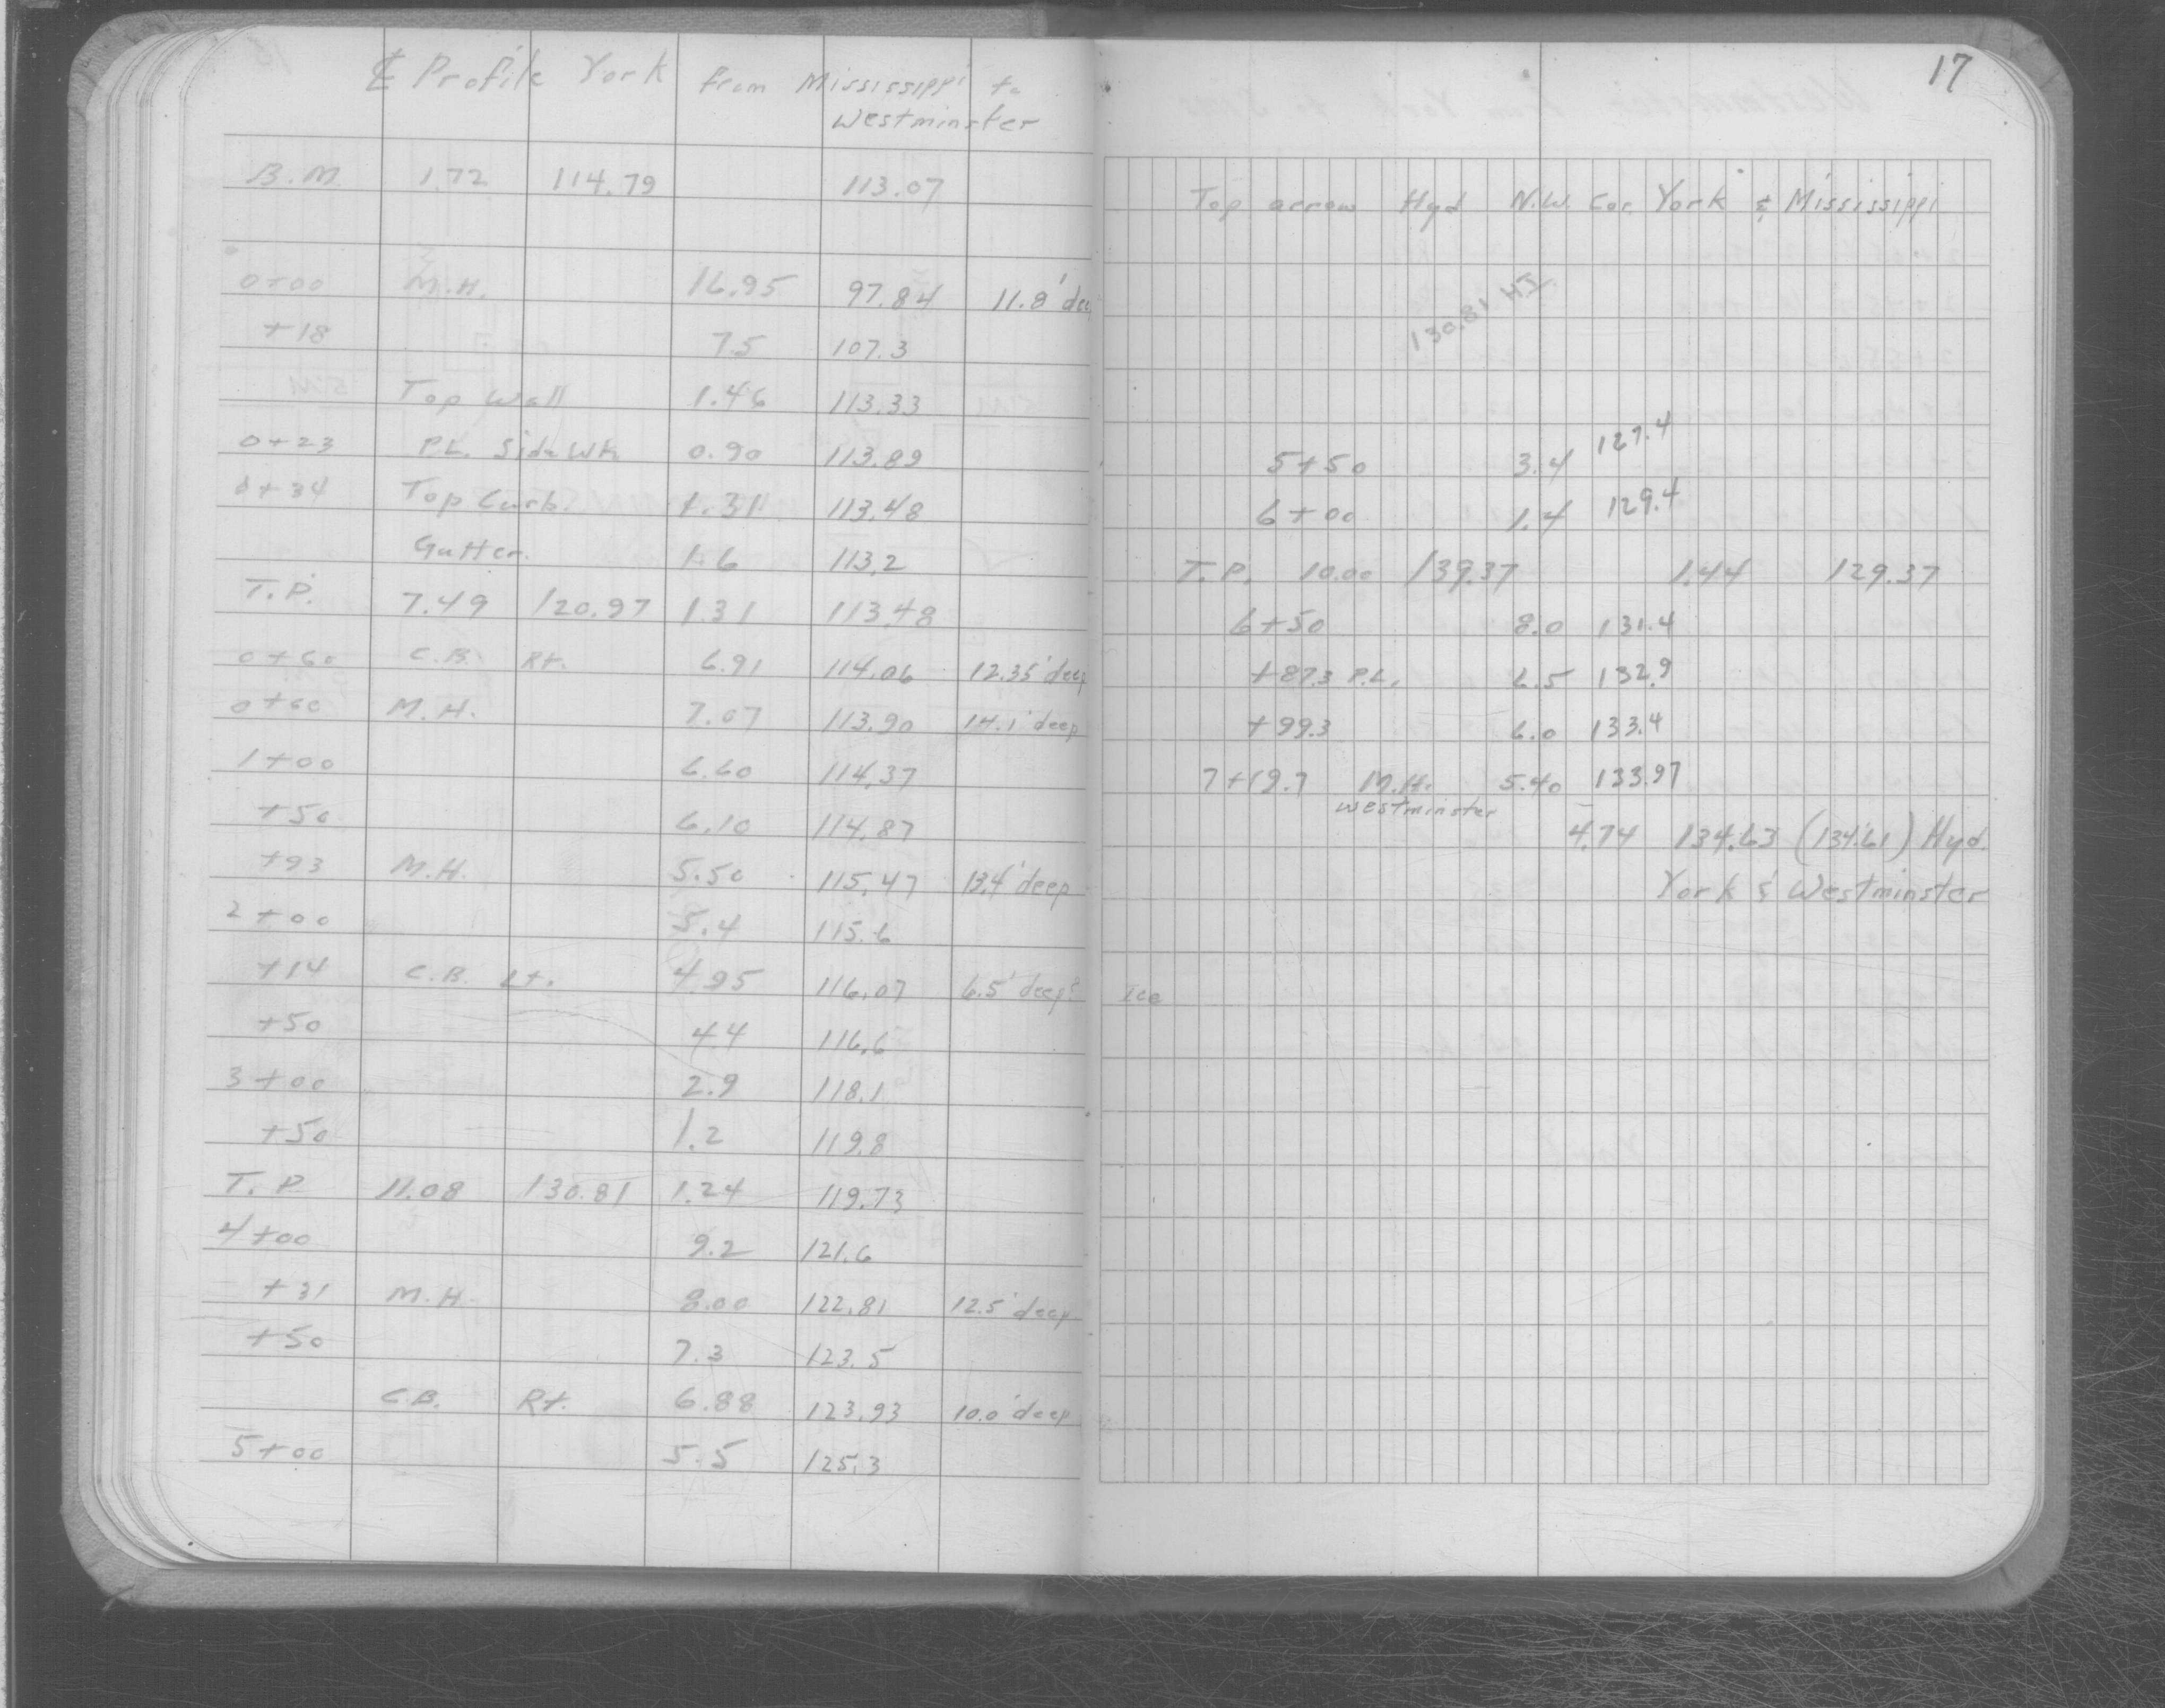 ℄ Profile York from Mississippi to
Westminster
B.M. 1.72 114.79 113.07
0+00 M.H. 16.95 97.84 11.8' deep
+18 7.5 107.3
Top Wall 1.46 113.33
0+23 P.L. Side Wk. 0.90 113.89
0+34 Top Curb. 1.31 113.48
Gutter. 1.6 113.2
T.P. 7.49 120.97 1.31 113.48
0+60 C.B. Rt. 6.91 114.06 12.35' deep
0+60 M.H. 7.07 113.90 14.1' deep
1+00 6.60 114.37
+50 6.10 114.87
+93 M.H. 5.50 115.47 13.4' deep
2+00 5.4 115.6
+14 C.B. Lt. 4.95 116.07 6.5' deep? Ice
+50 4.4 116.6
3+00 2.9 118.1
+50 1.2 119.8
T.P. 11.08 130.81 1.24 119.73
4+00 9.2 121.6
+31 M.H. 8.00 122.81 12.5' deep
+50 7.3 123.5
C.B. Rt. 6.88 123.93 10.0' deep
5+00 5.5 125.3
17
Top arrow Hyd N.W. Cor. York & Mississippi
130.81 HI
5+50 3.4 127.4
6+00 1.4 129.4
T.P. 10.00 139.37 1.44 129.37
6+50 8.0 131.4
+87.3 P.L. 6.5 132.9
+99.3 6.0 133.4
7+19.7 M.H. 5.40 133.97
Westminster
4.74 134.63 (134.61) Hyd.
York & Westminster